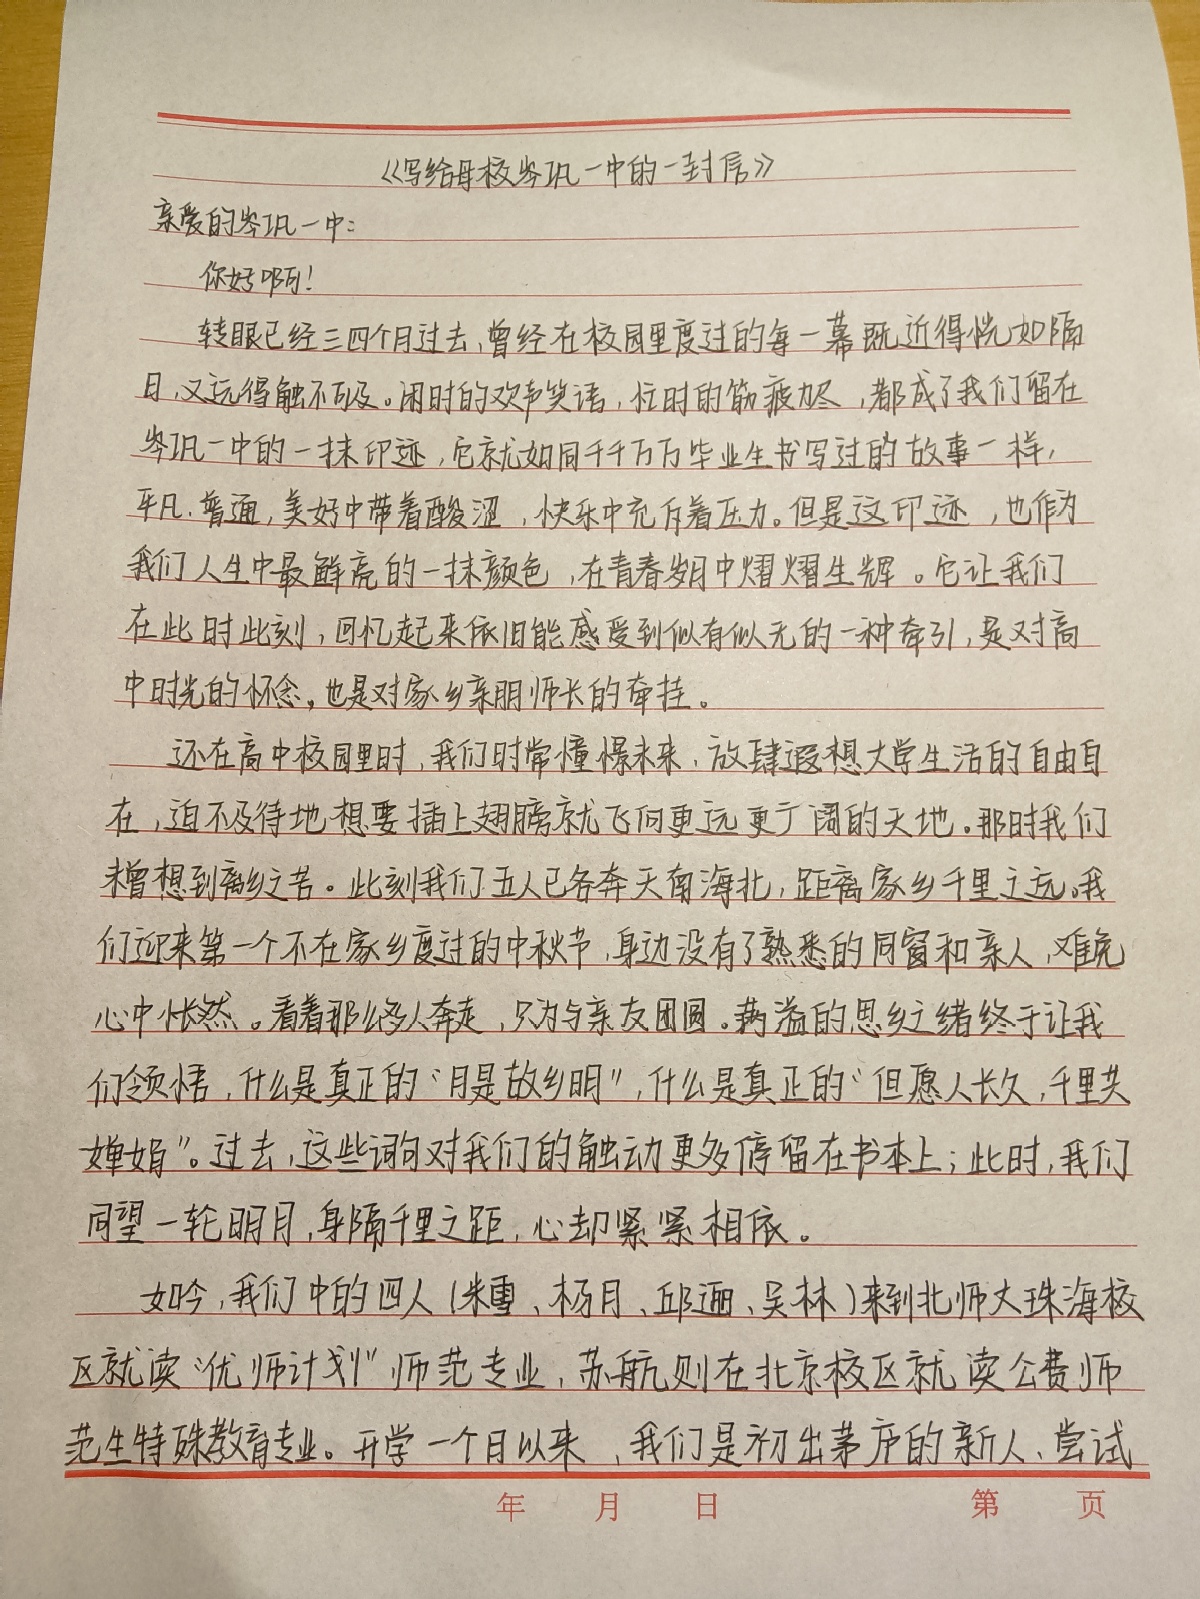 《写给母校岑巩一中的一封信》
亲爱的岑巩一中：
你好啊！
转眼已经三四个月过去，曾经在校园里度过的每一幕既近得恍如隔
日，又远得触不可及。闲时的欢声笑语，忙时的筋疲力尽，都成了我们留在
岑巩一中的一抹印迹，它就如同千千万万毕业生书写过的故事一样，
平凡、普通，美好中带着酸涩，快乐中充斥着压力。但是这印迹，也作为
我们人生中最鲜亮的一抹颜色，在青春岁月中熠熠生辉。它让我们
在此时此刻，回忆起来依旧能感受到似有似无的一种牵引，是对高
中时光的怀念，也是对家乡亲朋师长的牵挂。
还在高中校园里时，我们时常憧憬未来，放肆遐想大学生活的自由自
在，迫不及待地想要插上翅膀就飞向更远更广阔的天地。那时我们
未曾想到离乡之苦。此刻我们五人已各奔天南海北，距离家乡千里之远。我
们迎来第一个不在家乡度过的中秋节，身边没有了熟悉的同窗和亲人，难免
心中怅然。看着那么多人奔走，只为与亲友团圆。满溢的思乡之绪终于让我
们领悟，什么是真正的“月是故乡明”，什么是真正的“但愿人长久，千里共
婵娟”。过去，这些词句对我们的触动更多停留在书本上；此时，我们
同望一轮明月，身隔千里之距，心却紧紧相依。
如今，我们中的四人（朱雪、杨月、邱逦、吴林）来到北师大珠海校
区就读“优师计划”师范专业，苏航则在北京校区就读公费师
范生特殊教育专业。开学一个月以来，我们是初出茅庐的新人、尝试
年 月 日 第 页